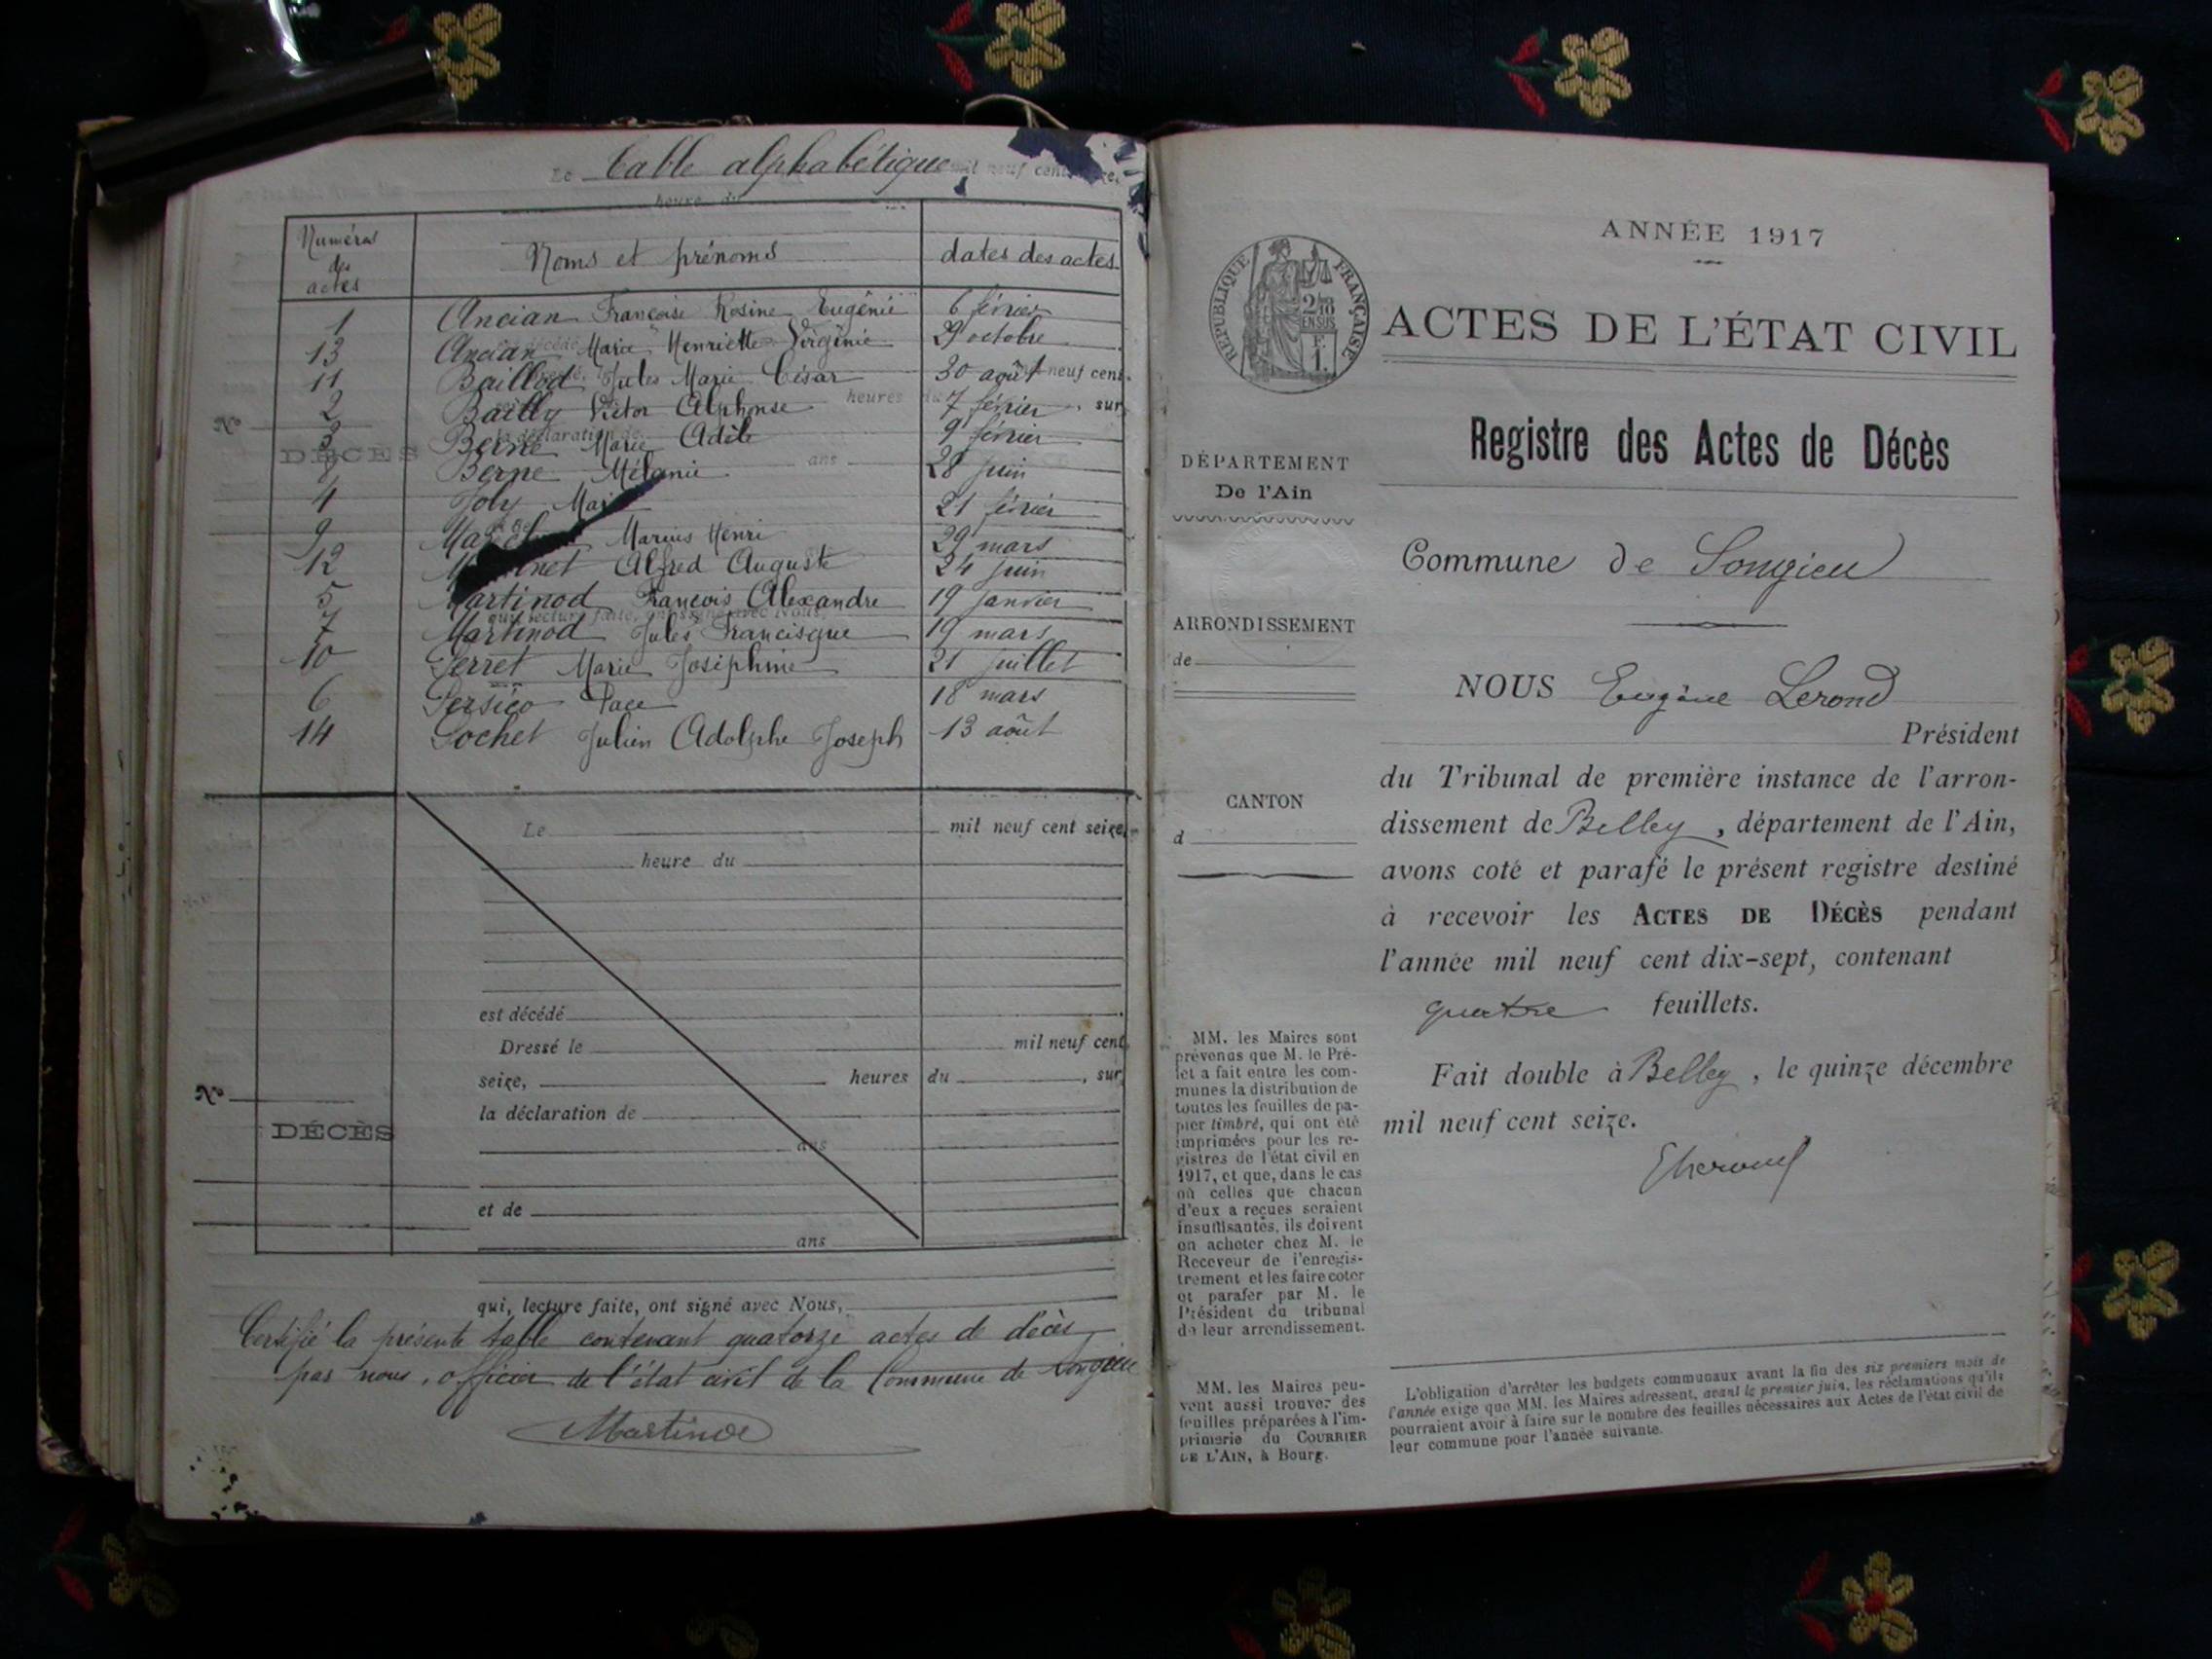 Table alphabétique
Le mil neuf cent
heure du
Numéros des actes
Noms et prénoms
dates des actes
1 Ancian Françoise Rosine Eugénie 6 février
13 Ancian Marie Henriette Virginie 29 octobre
11 Baillod Jules Marie César 30 août
2 Bailly Victor Alphonse 7 février
3 Berne Marie Adèle 9 février
Berne Mélanie 28 juin
4 Joly 21 février
9 Marius Henri 29 mars
12 Alfred Auguste 24 juin
5 Martinod François Alexandre 19 janvier
7 Martinod Jules Francisque 19 mars
10 Perret Marie Joséphine 21 juillet
6 Persico Pace 18 mars
14 Pochet Julien Adolphe Joseph 13 août
neuf cent
heures du sur
N°
DÉCÈS
la déclaration de
ans
qui, lecture faite, ont signé avec Nous,
Le mil neuf cent seize,
heure du
est décédé
Dressé le mil neuf cent
seize, heures du , sur
N°
la déclaration de
DÉCÈS
ans
et de
ans
qui, lecture faite, ont signé avec Nous,
Certifié la présente table contenant quatorze actes de décès
par nous, officier de l'état civil de la Commune de Songieu
Martinod
ANNÉE 1917
RÉPUBLIQUE FRANÇAISE
2/10 EN SUS
F. 1.
ACTES DE L'ÉTAT CIVIL
Registre des Actes de Décès
DÉPARTEMENT
De l'Ain
ARRONDISSEMENT
de
CANTON
d
Commune de Songieu
NOUS Eugène Lerond
Président
du Tribunal de première instance de l'arron-
dissement de Belley, département de l'Ain,
avons coté et parafé le présent registre destiné
à recevoir les ACTES DE DÉCÈS pendant
l'année mil neuf cent dix-sept, contenant
quatre feuillets.
Fait double à Belley, le quinze décembre
mil neuf cent seize.
MM. les Maires sont
prévenus que M. le Pré-
fet a fait entre les com-
munes la distribution de
toutes les feuilles de pa-
pier timbré, qui ont été
imprimées pour les re-
gistres de l'état civil en
1917, et que, dans le cas
où celles que chacun
d'eux a reçues seraient
insuffisantes, ils doivent
en acheter chez M. le
Receveur de l'enregis-
trement et les faire coter
et parafer par M. le
Président du tribunal
de leur arrondissement.
MM. les Maires peu-
vent aussi trouver des
feuilles préparées à l'im-
primerie du COURRIER
DE L'AIN, à Bourg.
L'obligation d'arrêter les budgets communaux avant la fin des six premiers mois de
l'année exige que MM. les Maires adressent, avant le premier juin, les réclamations qu'ils
pourraient avoir à faire sur le nombre des feuilles nécessaires aux Actes de l'état civil de
leur commune pour l'année suivante.